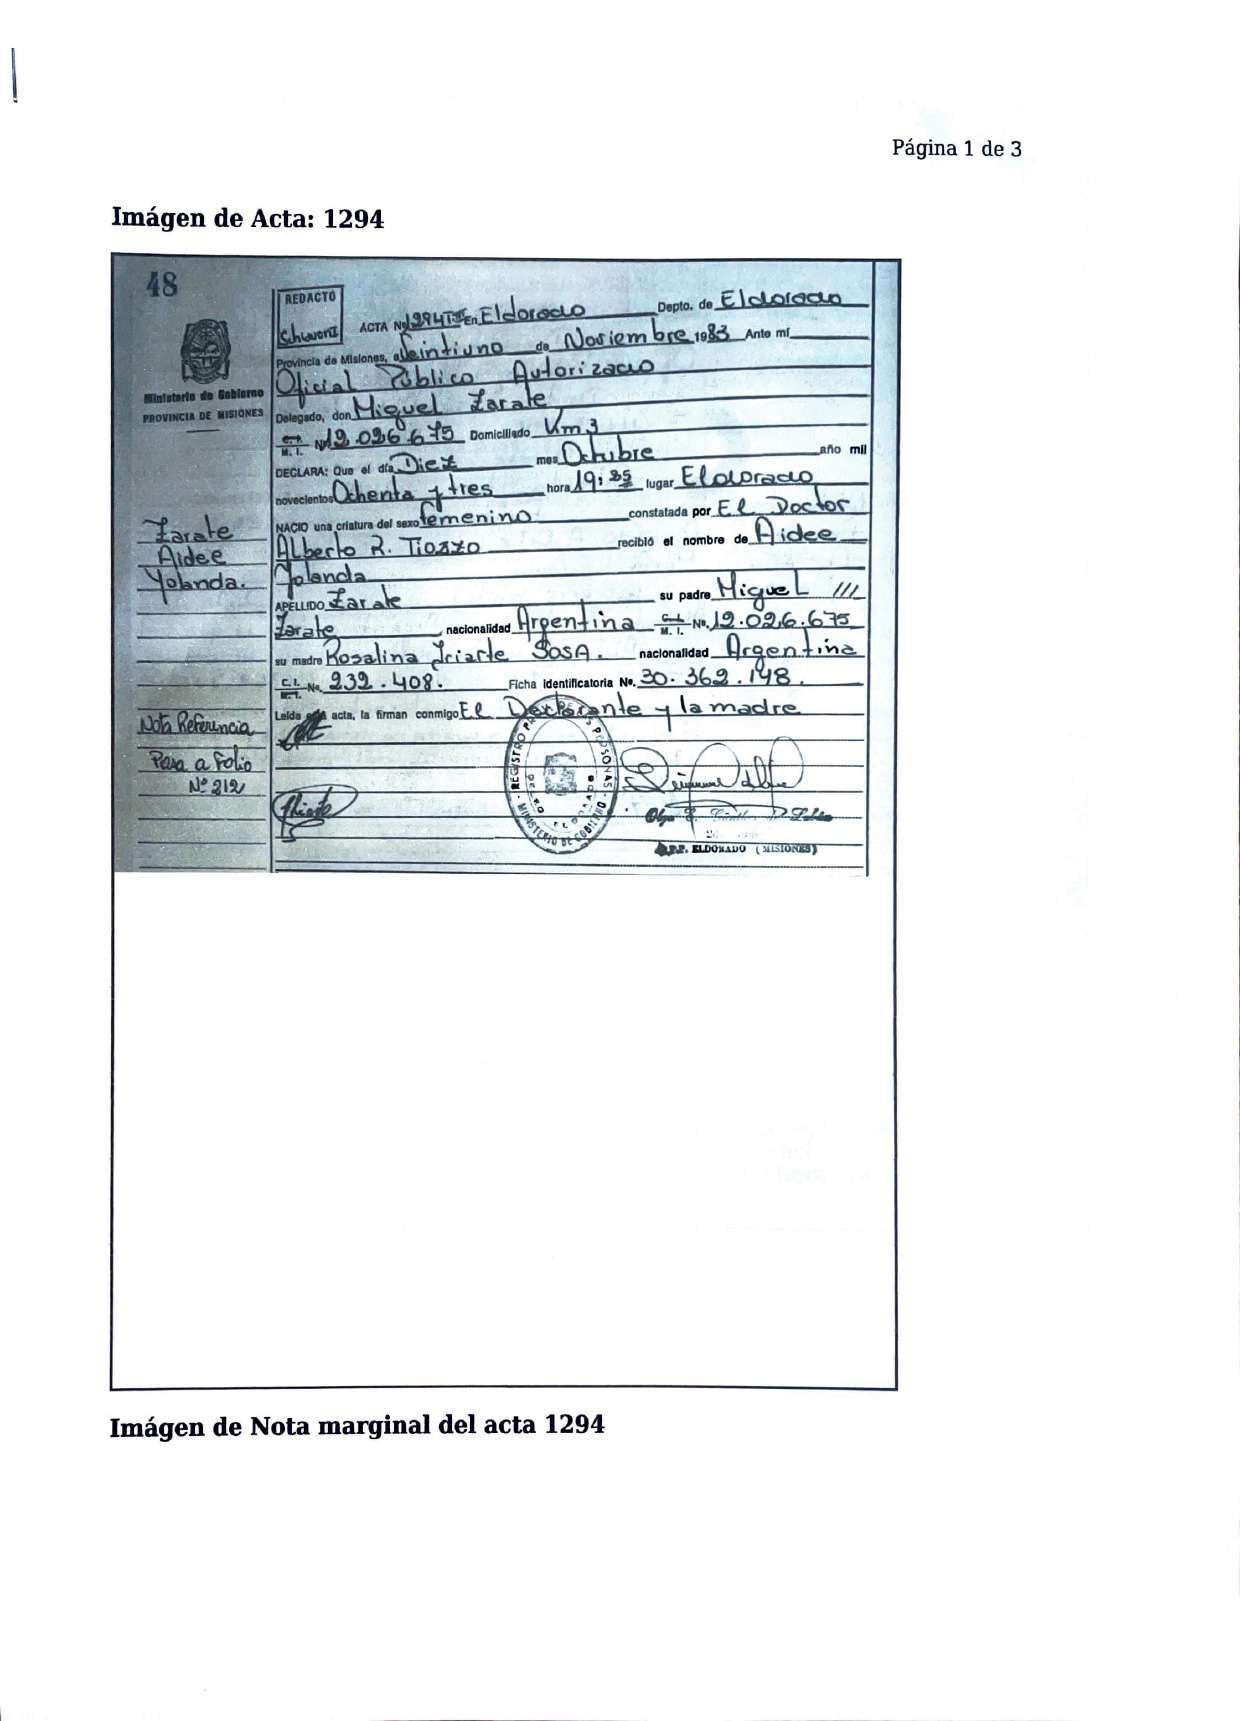 Página 1 de 3
Imágen de Acta: 1294
48
REDACTO
ACTA Nº 1294 En Eldorado Depto. de Eldorado
Provincia de Misiones, a Veintiuno de Noviembre 1983 Ante mí
Oficial Público Autorizado
Ministerio de Gobierno
PROVINCIA DE MISIONES
Delegado, don Miguel Zarate
M. I. Nº 12.026.675 Domiciliado Km 3
DECLARA: Que el día Diez mes Octubre año mil
novecientos Ochenta y tres hora 19: lugar Eldorado
NACIO una criatura del sexo femenino constatada por El Doctor
Zarate
Aidee
Yolanda.
Alberto R. Tiozzo recibió el nombre de Aidee
Yolanda
APELLIDO Zarate su padre Miguel ///
Zarate nacionalidad Argentina M. I. Nº. 12.026.675
su madre Rosalina Iriarte Sosa. nacionalidad Argentina
C. I. No. 232.408. Ficha identificatoria Nº. 30.362.148.
Leída esta acta, la firman conmigo El Declarante y la madre
Nota Referencia
Pasa a Folio
Nº 212
REGISTRO PERSONAS
MINISTERIO DE GOBIERNO
ELDORADO (MISIONES)
Imágen de Nota marginal del acta 1294